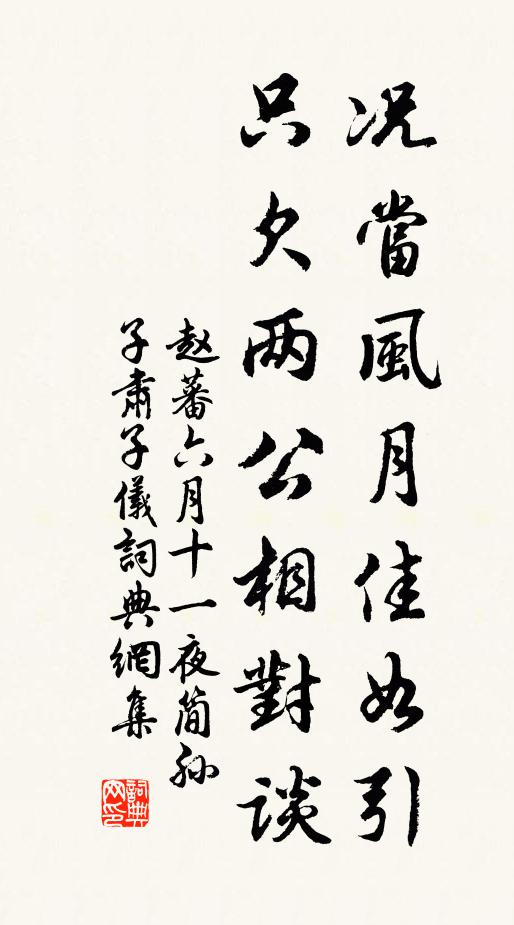 况當風月佳如引
只欠两公相對談
赵蕃六月十一夜简孙
子肅子儀詞典網集
詞典网印